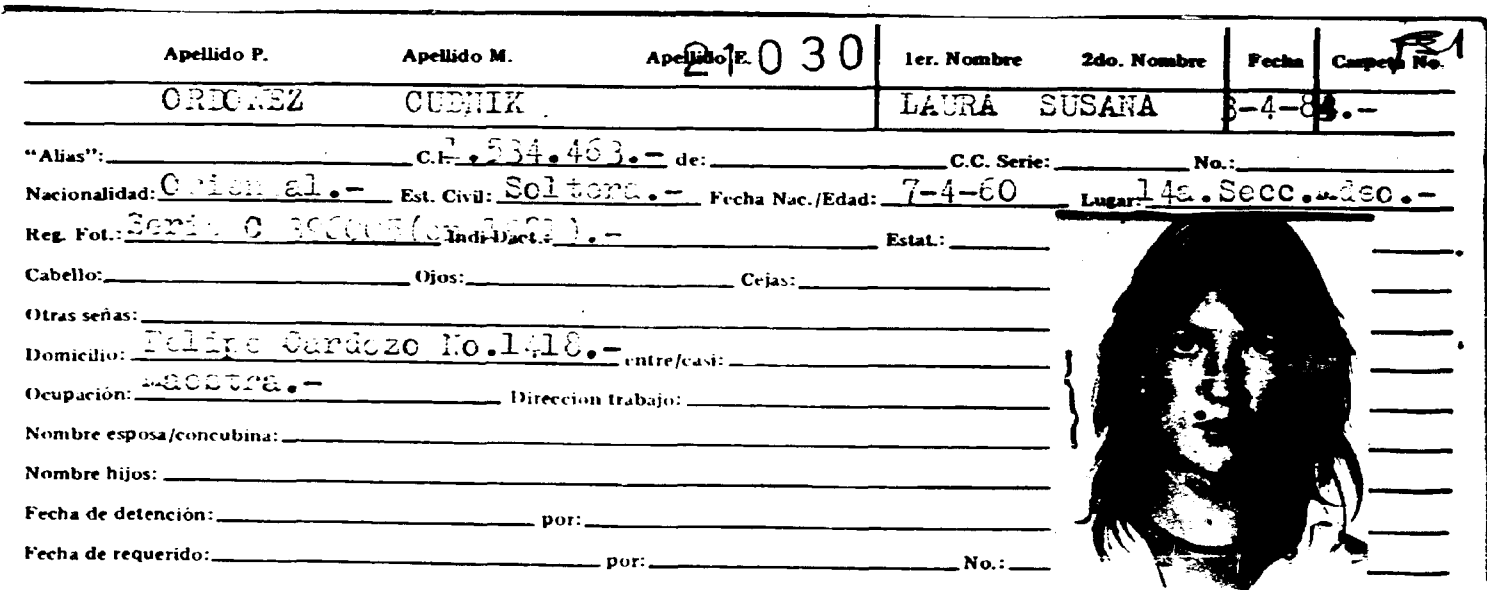 Apellido P. Apellido M. Apellido E. 21030 1er. Nombre 2do. Nombre Fecha Carpeta No.
ORDOÑEZ CUDNIK LAURA SUSANA -4-8 .-
"Alias": C.I. .534.463.- de: C.C. Serie: No.:
Nacionalidad: Oriental.- Est. Civil: Soltera.- Fecha Nac./Edad: 7-4-60 Lugar: 14a.Secc.Mdeo.-
Reg. Fot.: Serie C Indi-Dact.: .- Estat.:
Cabello: Ojos: Cejas:
Otras señas:
Domicilio: Felipe Cardozo No.1418.- entre/casi:
Ocupación: Maestra.- Direccion trabajo:
Nombre esposa/concubina:
Nombre hijos:
Fecha de detención: por:
Fecha de requerido: por: No.: